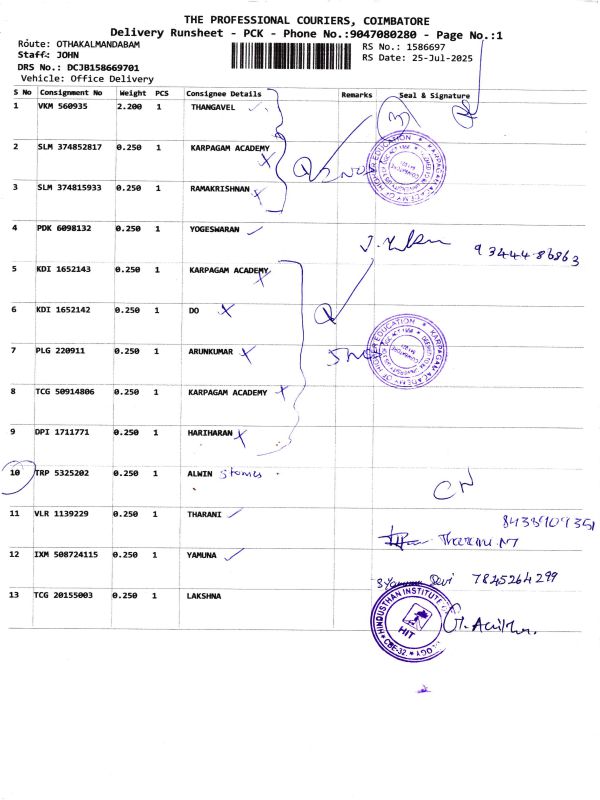 THE PROFESSIONAL COURIERS, COIMBATORE
Delivery Runsheet - PCK - Phone No.:9047080280 - Page No.:1
Route: OTHAKALMANDABAM
RS No.: 1586697
Staff: JOHN
RS Date: 25-Jul-2025
DRS No.: DCJB158669701
Vehicle: Office Delivery
S No Consignment No Weight PCS Consignee Details Remarks Seal & Signature
1 VKM 560935 2.200 1 THANGAVEL
2 SLM 374852817 0.250 1 KARPAGAM ACADEMY
3 SLM 374815933 0.250 1 RAMAKRISHNAN
4 PDK 6098132 0.250 1 YOGESWARAN
93444 86863
5 KDI 1652143 0.250 1 KARPAGAM ACADEMY
6 KDI 1652142 0.250 1 DO
7 PLG 220911 0.250 1 ARUNKUMAR
8 TCG 50914806 0.250 1 KARPAGAM ACADEMY
9 DPI 1711771 0.250 1 HARIHARAN
10 TRP 5325202 0.250 1 ALWIN stories
CN
11 VLR 1139229 0.250 1 THARANI
12 IXM 508724115 0.250 1 YAMUNA
Devi 7845264299
13 TCG 20155003 0.250 1 LAKSHNA
HINDUSTHAN INSTITUTE
HIT
CBE-32